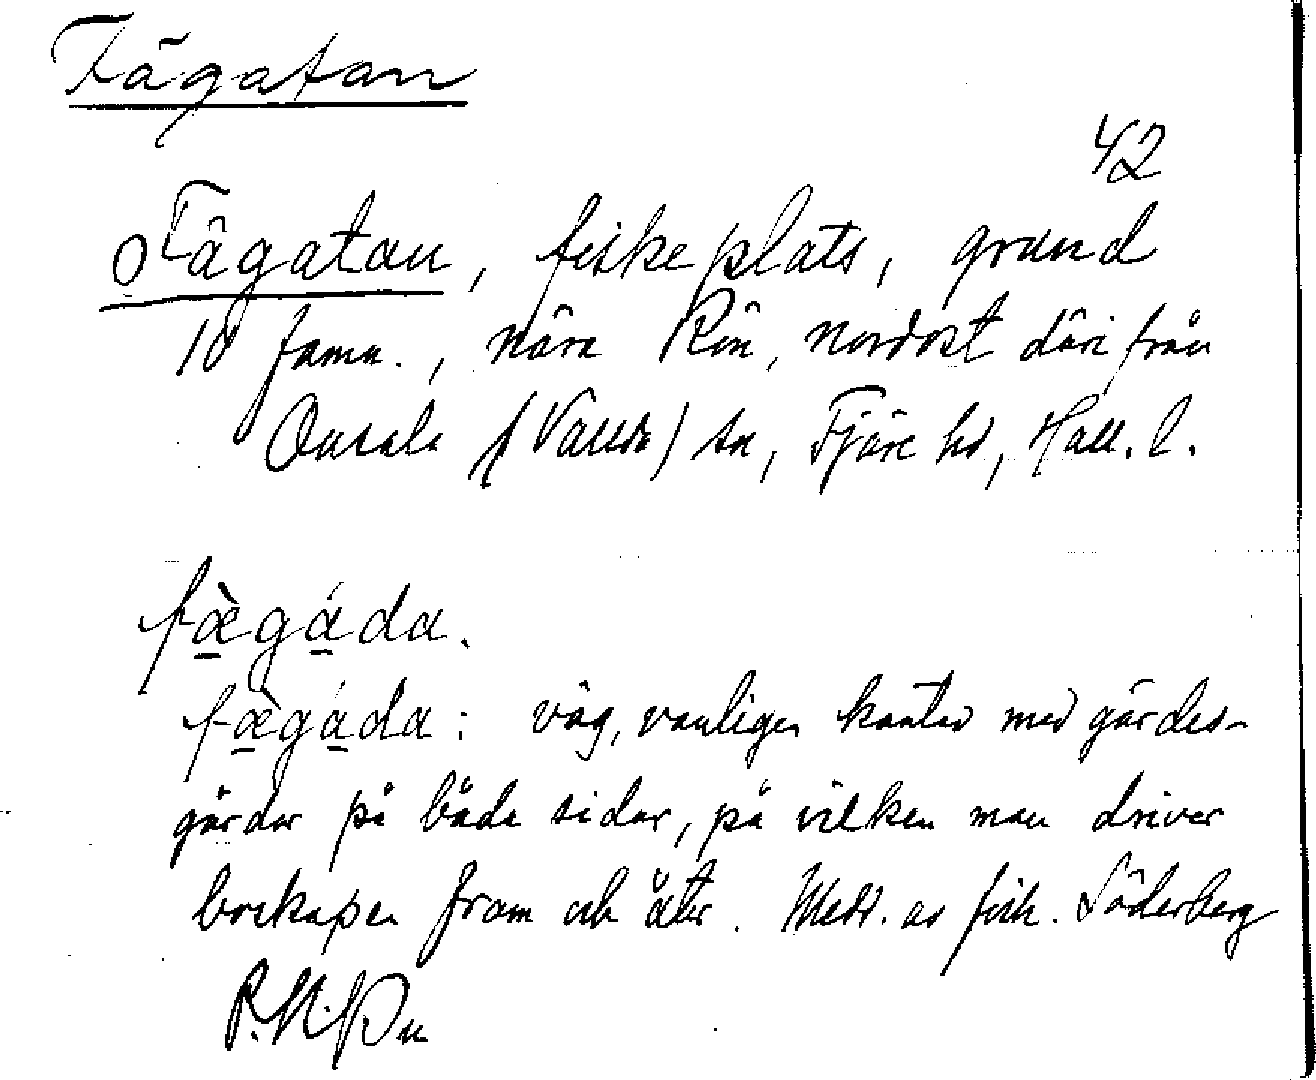 Fägatan
42
o Fägatan, fiskeplats, grund
10 famn., nära Rön, nordost därifrån
Onsala (Vallda) sn, Fjäre hd, Hall. l.
fæ̀gáda.
fæ̀gáda: väg, vanligen kantad med gärdes-
gårdar på båda sidor, på vilken man driver
boskapen fram och åter. Medd. av fisk. Söderberg